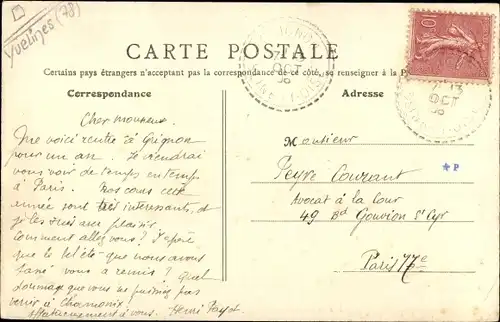 Yvelines (78)
CARTE POSTALE
Certains pays étrangers n'acceptant pas la correspondance de ce côté, se renseigner à la P
Correspondance
Adresse
Cher monsieur.
Me voici rentré à Grignon
pour un an. Je viendrai
vous voir de temps en temps
à Paris. Nos cours cette
année sont très intéressants, et
je les suis avec plaisir
Comment allez vous? J'espère
que le bel été que nous avons
passé vous a remis? Quel
dommage que vous ne puissiez pas
venir à Chamonix
affectueusement à vous. Henri Payot
Monsieur
Peyre Courant
Avocat à la Cour
49 Bd Gouvion St Cyr
Paris 17e
*P
OCT
10
OCT